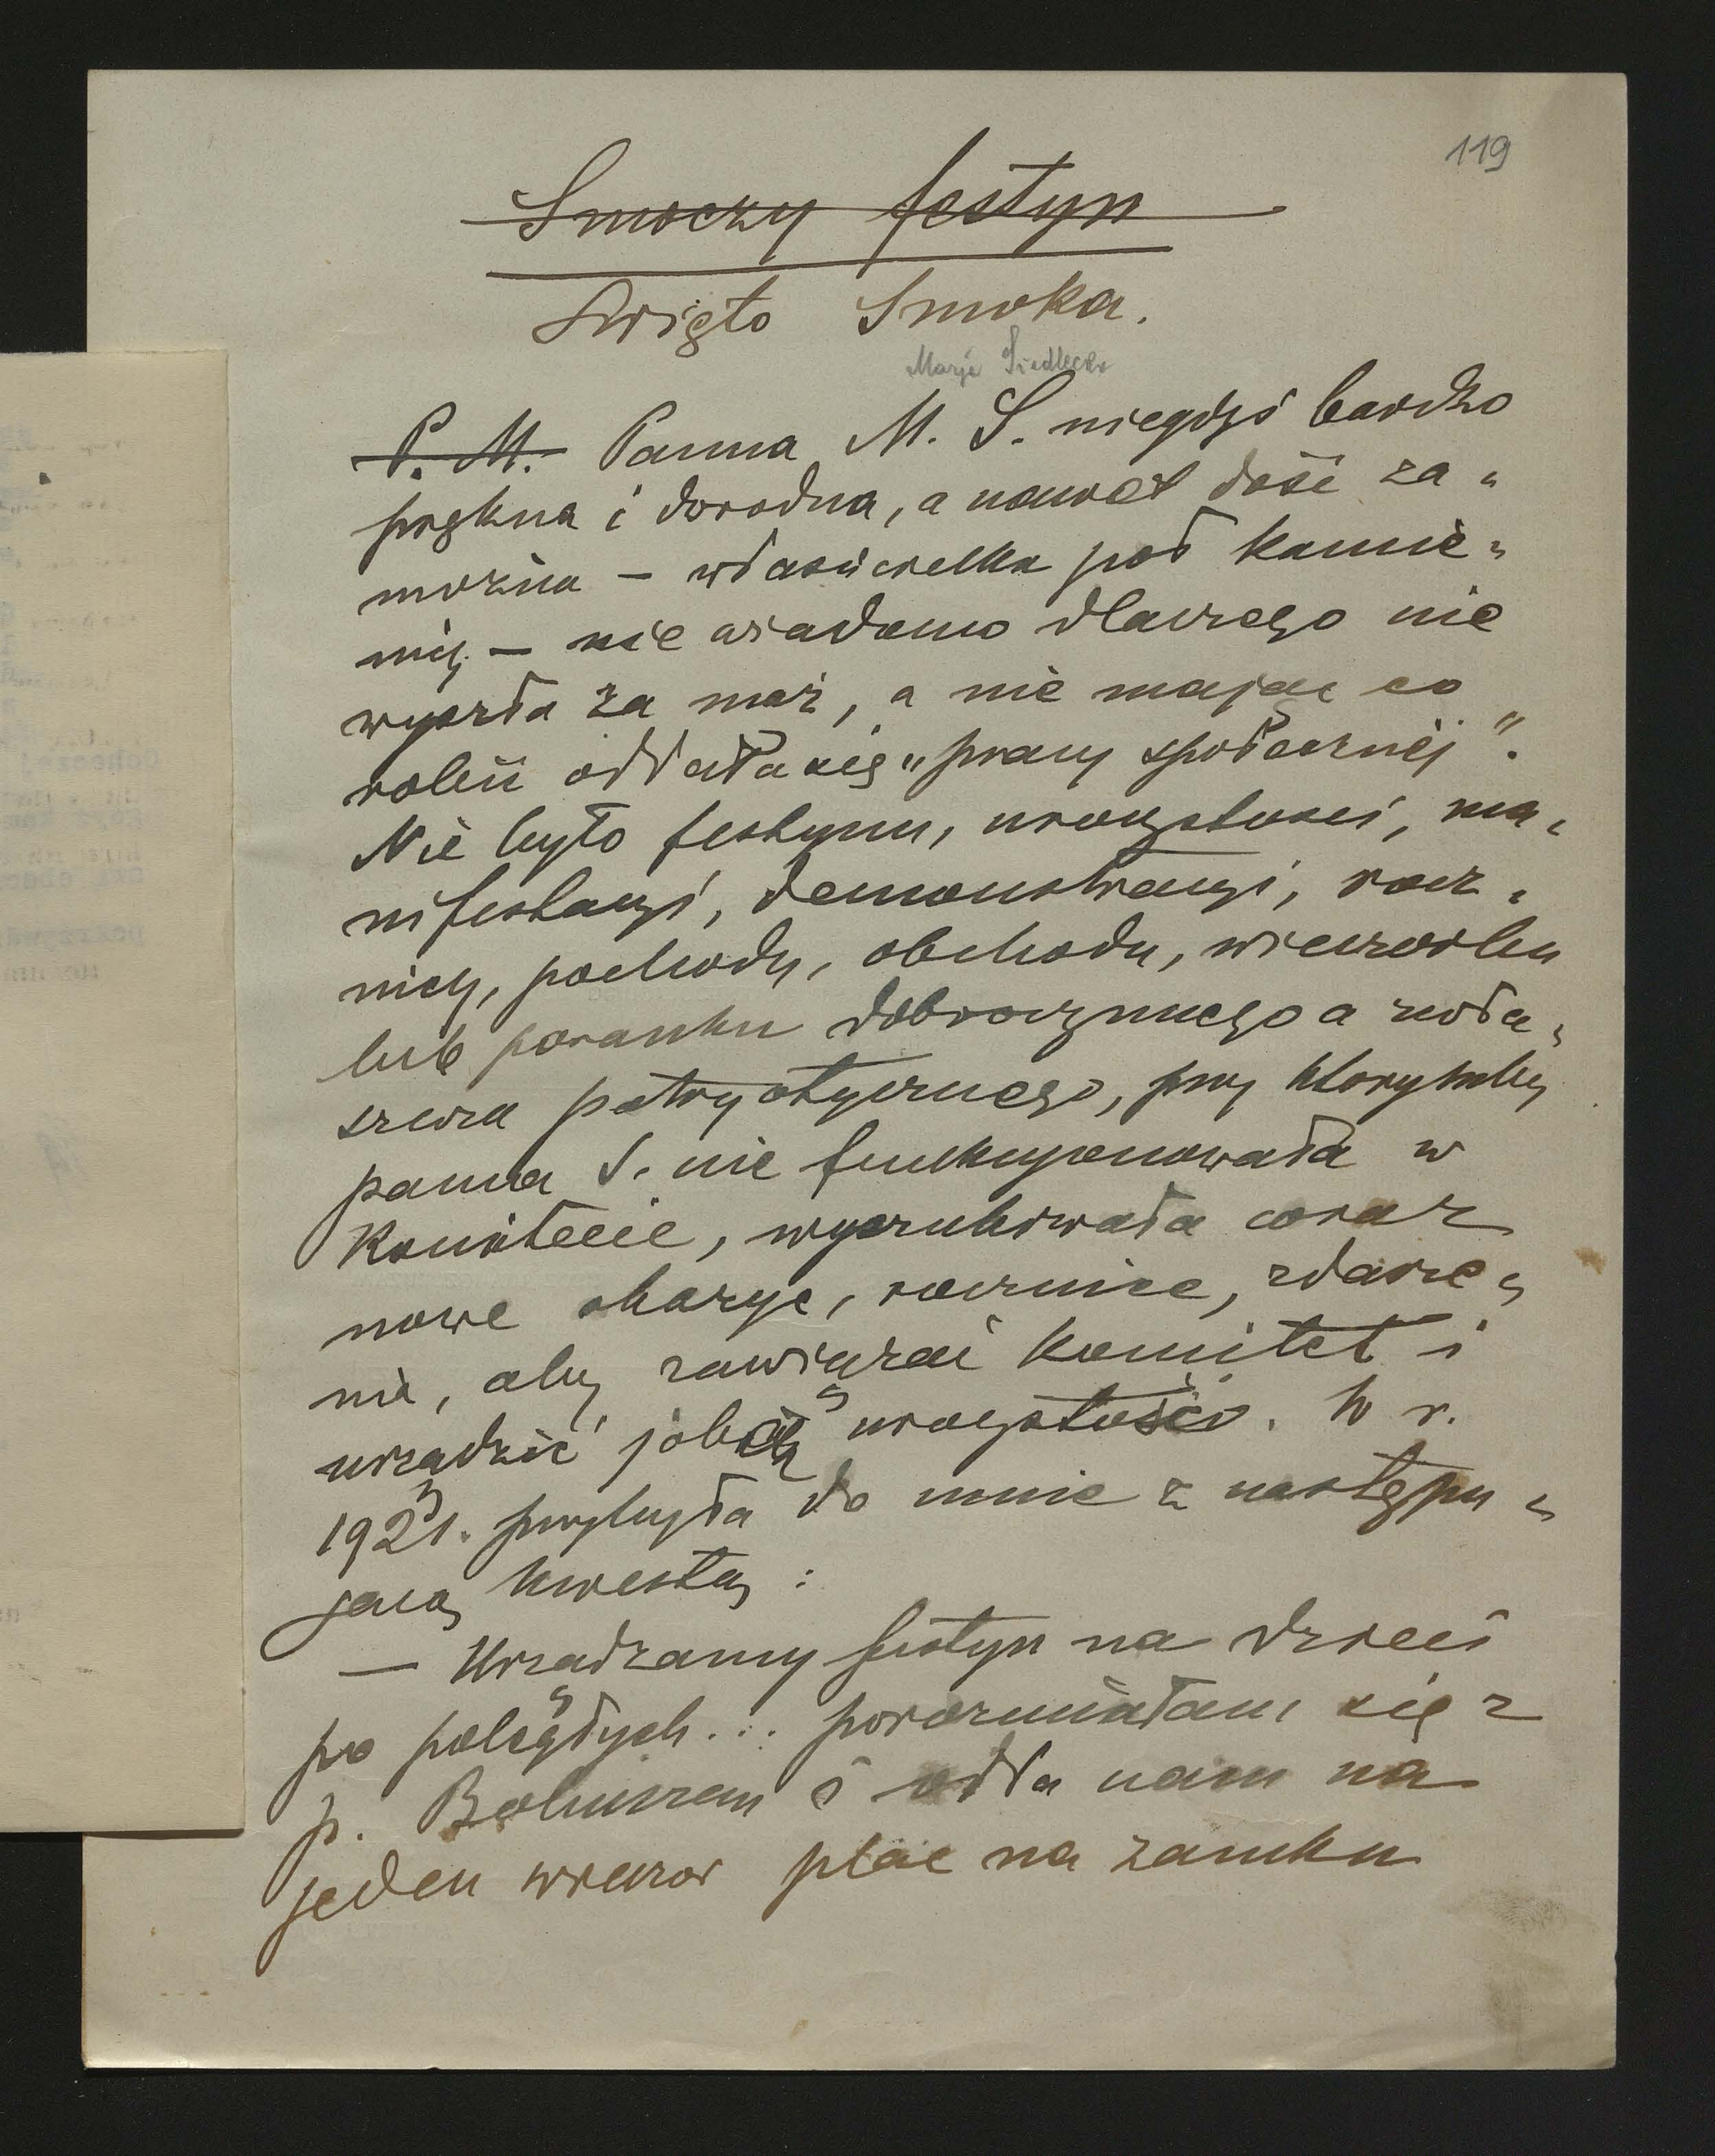 119
Smoczy festyn
Święto Smoka.
Marja Siedlecka
P. M. Panna M. S. niegdyś bardzo
piękna i dorodna, a nawet dość za„
można – właścicielka pół kamie„
nicy – nie wiadomo dlaczego nie
wyszła za mąż, a nie mając co
robić oddała się „pracy społecznéj".
Nie było festynu, uroczystości, ma„
nifestacyi, demonstracyi, rocz„
nicy, pochodu, obchodu, wieczorku
lub poranku dobroczynnego a zwła„
szcza patryotycznego, przy którymby
panna S. nie funkcyonowała w
Komitecie, wyszukiwała coraz
nowe okazye, rocznice, zdarze„
nia, aby zawiązać komitet i
urządzić jakąś uroczystość. W r.
1921. przybyła do mnie z następu„
jącą kwestą:
— Urządzamy festyn na dzieci
po poległych... porozumiałam się z
p. Bohuszem i odda nam na
jeden wieczór plac na zamku